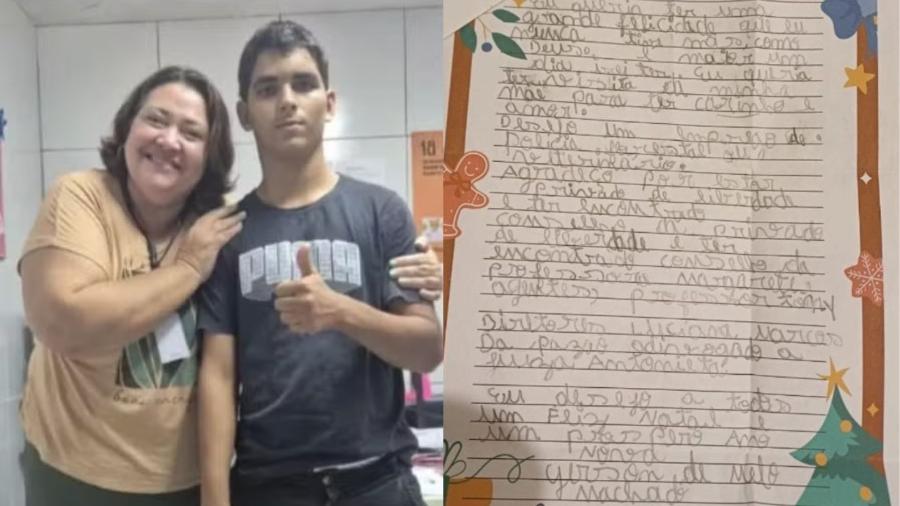 PUMA
Eu queria ter uma
grande felicidade que eu
nunca tive mas como
Deus é maior um
dia irei ter, eu queria
ter visita da minha
mãe para ter carinho e
amor.
Desejo um emprego de
Policia florestal ou
veterinário.
Agradeço por estar
privado de liberdade
e ter encontrado
conselho privado
de liberdade e ter
encontrado conselho da
professora
agentes, professor
Diretores Luciana Marcos
Da advogado a
juiza Antonieta.
Eu desejo a todos
um Feliz Natal e
um prospero Ano
Novo
Gerson de Melo
Machado